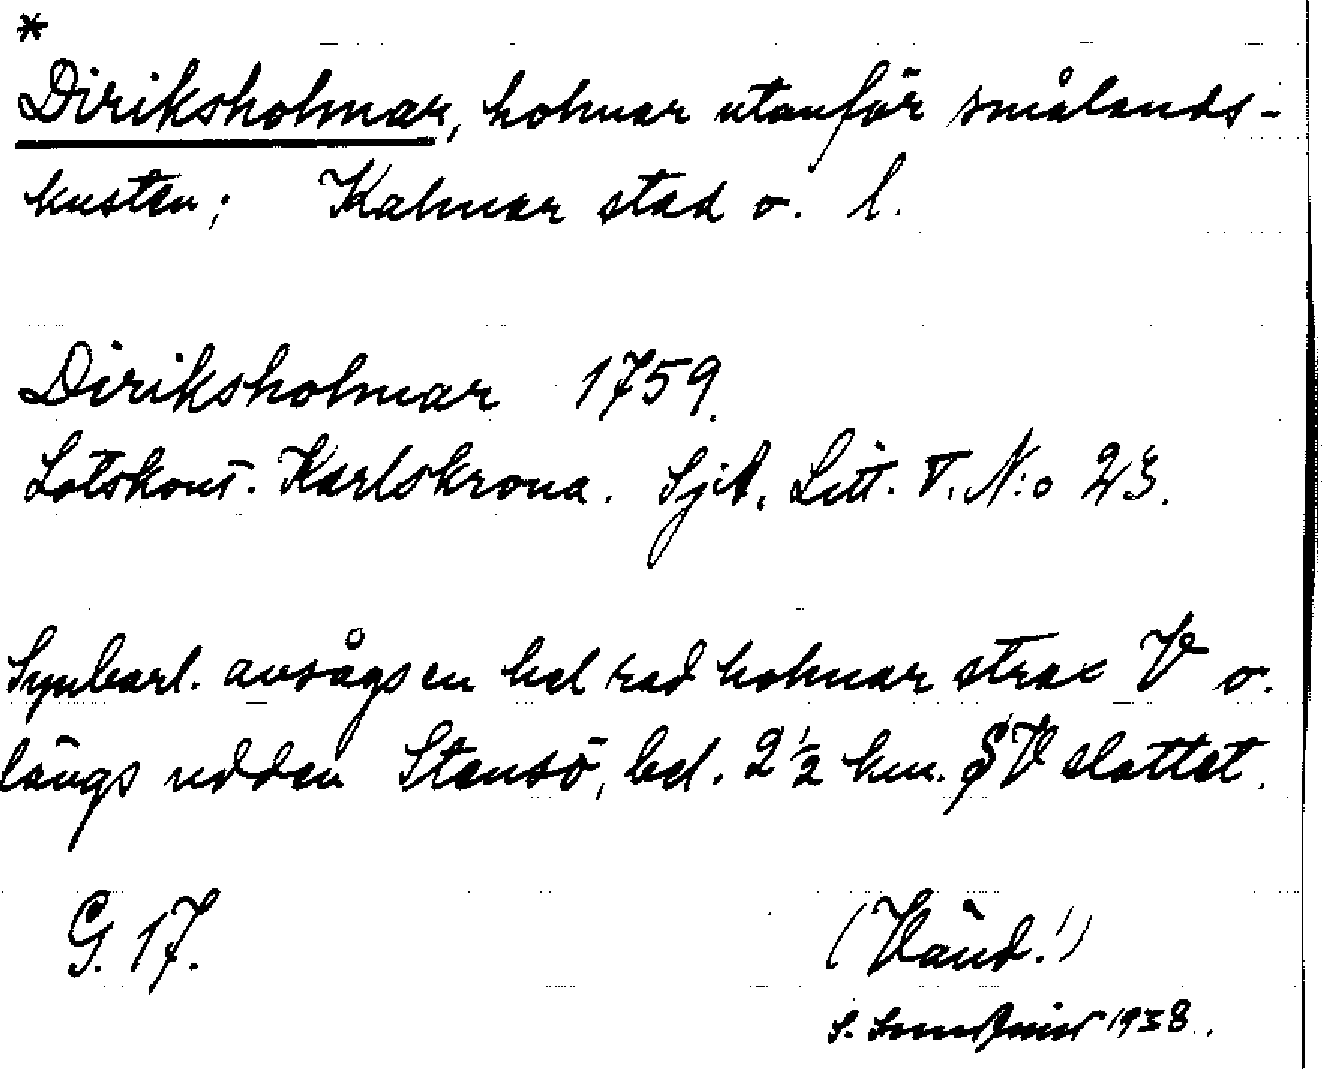 *
Diriksholmar, holmar utanför smålands-
kusten; Kalmar stad o. l.
Diriksholmar 1759.
Lotskont. Karlskrona. Sjk. Litt. V. N:o 23.
Synbarl. avsågs en hel rad holmar strax V o.
längs udden Stensö, bel. 2 1/2 km. SV slottet.
G. 17.
(Vänd!)
S. 1938.